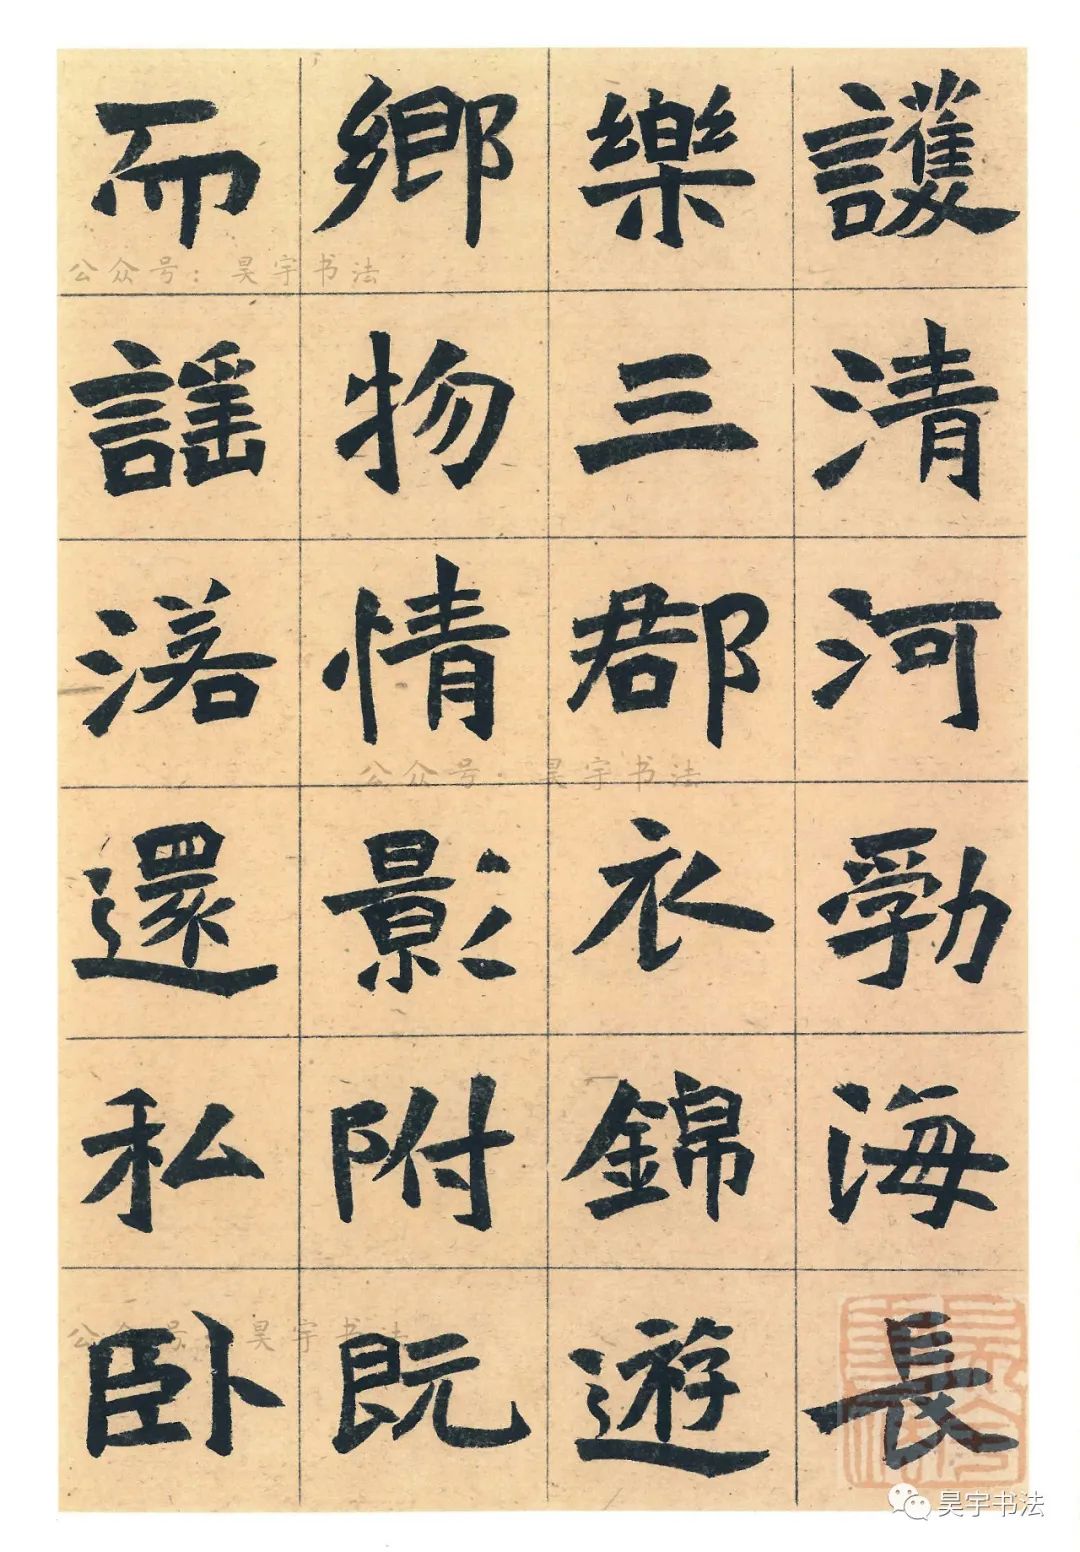 護清河勃海長
樂三郡衣錦遊
鄉物情影附既
而謡渃還私卧
公众号：昊宇书法
公众号·昊宇书法
公众号：昊宇书法
昊宇书法